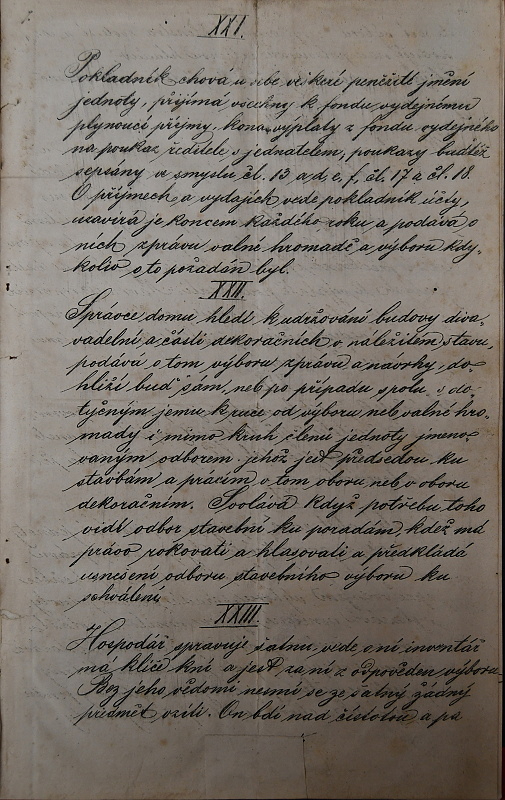 XXI.
Pokladník chová u sebe veškeré peněžité jmění
jednoty, přijímá všechny k fondu vydejnému
plynoucí příjmy, koná výplaty z fondu vydejného
na poukaz ředitele s jednatelem, poukazy buďtež
sepsány ve smyslu čl. 13 a, d, e, f, čl. 17 a čl. 18.
O příjmech a vydajích vede pokladník účty,
uzavírá je koncem každého roku a podává o
nich zprávu valné hromadě a výboru kdy-
koliv o to požádán byl.
XXII.
Správce domu hledí k udržování budovy diva-
vadelní a částí dekoračních v náležitém stavu,
podává o tom výboru zprávu a návrhy, do-
hlíží buď sám, neb po případu spolu s do-
tyčným jemu k ruce od výboru neb valné hro-
mady i mimo kruh členů jednoty jmeno-
vaným odborem jehož jest předsedou ku
stavbám a pracím v tom oboru neb v oboru
dekoračním. Svolává když potřebu toho
vidí odbor stavební ku poradám, kdež má
právo rokovati a hlasovati a předkládá
usnešení odboru stavebního výboru ku
schválení.
XXIII.
Hospodář spravuje šatnu, vede o ní inventář
má klíče k ní a jest za ní zodpověden výboru.
Bez jeho vědomí nesmí se ze šatny žádný
předmět vzíti. On bdí nad čistotou a po